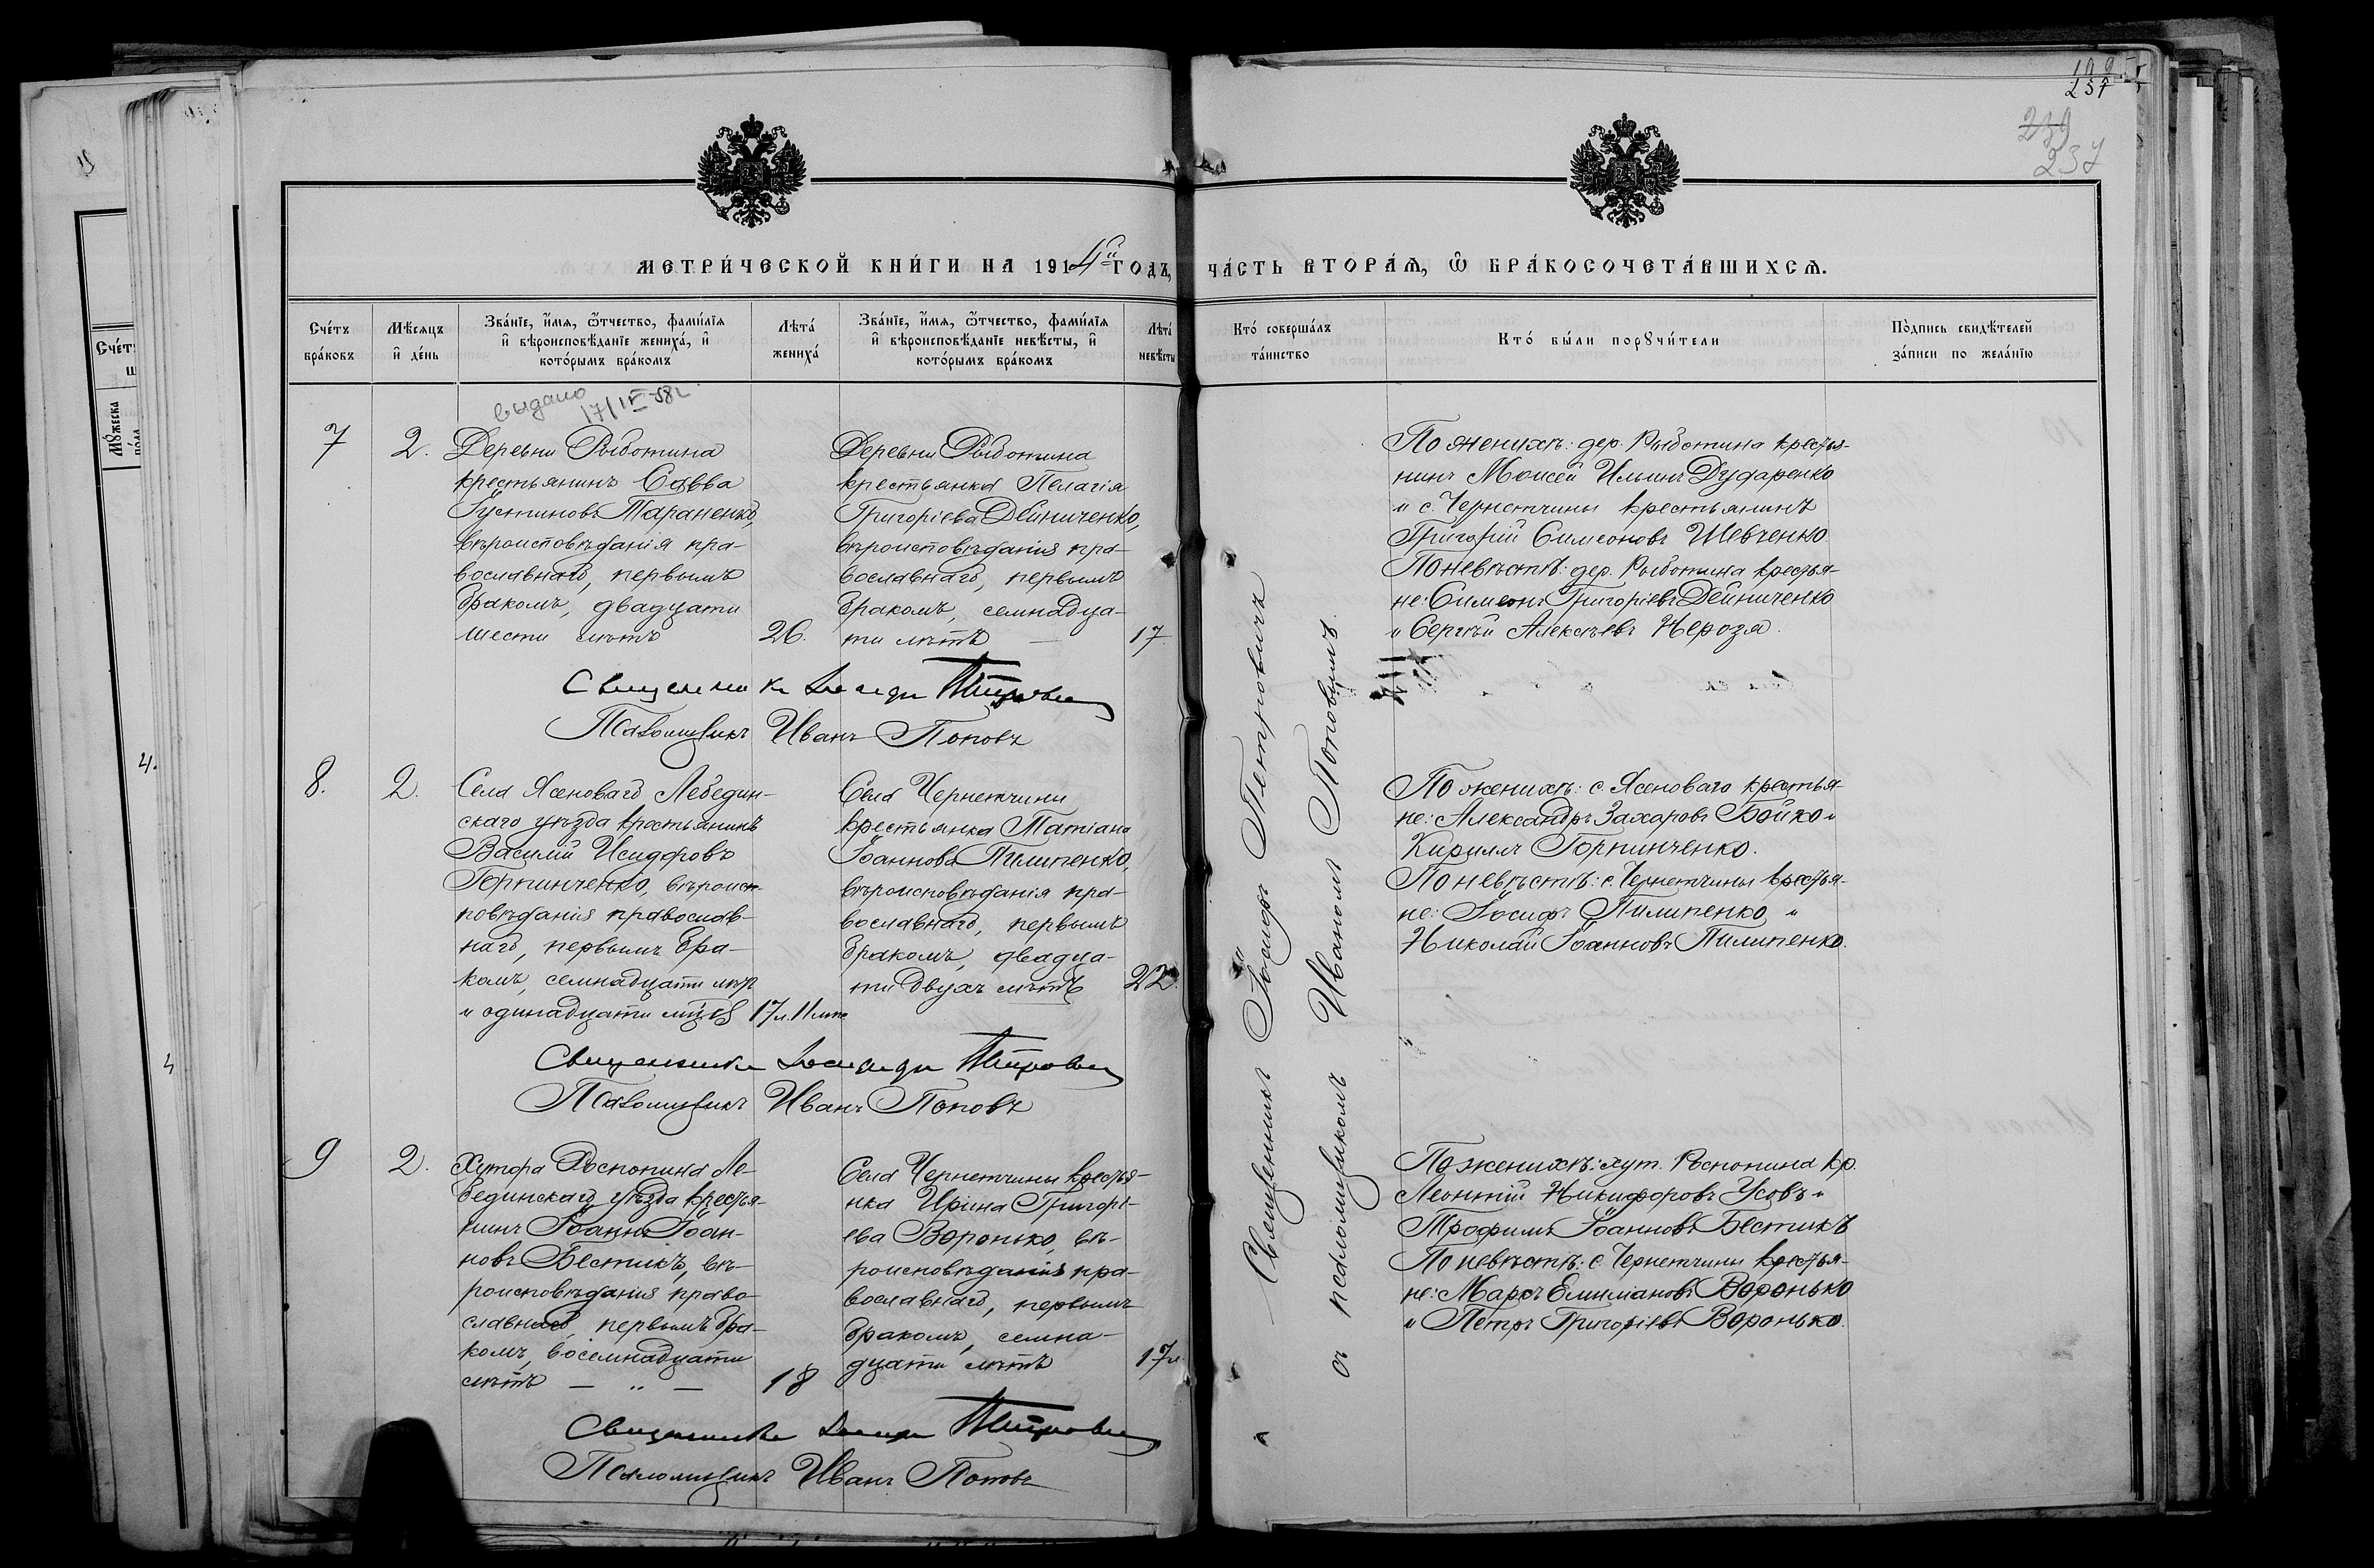 199
237
239
237
МЕТРИ́ЧЕСКОЙ КНИ́ГИ НА 1914й ГОДЪ,
ЧА́СТЬ ВТОРА́Ѧ, Ѽ БРА́КОСОЧЕТА́ВШИХСѦ.
Сче́тъ бра́ковъ
Мѣ́сѧцъ и҆ де́нь
Зва́нїе, и҆́мѧ, ѻ҆́тчество, фами́лїѧ и҆ вѣроисповѣ́данїе жениха́, и҆ кото́рымъ бра́комъ
Лѣта́ жениха́
Зва́нїе, и҆́мѧ, ѻ҆́тчество, фами́лїѧ и҆ вѣроисповѣ́данїе невѣ́сты, и҆ кото́рымъ бра́комъ
Лѣта́ невѣ́сты
Кто́ соверша́лъ та́инство
Кто́ бы́ли порꙋчи́тели
По́дпись свидѣ́телей за́писи по жела́нїю
выдано
7
2.
Деревни Рыботина
крестьянинъ Савва
Іустиновъ Тараненко,
вѣроисповѣданія пра-
вославнаго, первымъ
бракомъ, двадцати
шести лѣтъ
26.
Деревни Рыботина
крестьянка Пелагія
Григоріева Дейниченко,
вѣроисповѣданія пра-
вославнаго, первымъ
бракомъ, семнадца-
ти лѣтъ —
17
По женихѣ: дер. Рыботина крестья-
нинъ Моисей Ильинъ Дударенко
и с. Чернетчины крестьянинъ
Григорій Симеоновъ Шевченко.
По невѣстѣ: дер. Рыботина крестья-
не: Симеонъ Григоріевъ Дейниченко
и Сергѣй Алексѣевъ Нерозя.
Священникъ Іосифъ Петровичъ
Псаломщикъ Иванъ Поповъ
8.
2.
Села Ясеноваго Лебедин-
скаго уѣзда крестьянинъ
Василій Исидоровъ
Горпинченко, вѣроис-
повѣданія православ-
наго, первымъ бра-
комъ, семнадцати лѣтъ
и одинадцати мѣс.
17 л. 11 мѣс.
Села Чернетчины
крестьянка Татіана
Іоаннова Пилипенко,
вѣроисповѣданія пра-
вославнаго, первымъ
бракомъ, двадца-
ти двухъ лѣтъ
22.
По женихѣ: с. Ясеноваго крестья-
не: Александръ Захаровъ Бойко и
Кириллъ Горпинченко.
По невѣстѣ: с. Чернетчины крестья-
не: Іосифъ Пилипенко и
Николай Іоанновъ Пилипенко.
Священникъ Іосифъ Петровичъ
Псаломщикъ Иванъ Поповъ
9
2.
Хутора Роспопина Ле-
бединскаго уѣзда крестья-
нинъ Іоаннъ Іоан-
новъ Бестикъ, вѣ-
роисповѣданія право-
славнаго, первымъ бра-
комъ, восемнадцати
лѣтъ — „ —
18
Села Чернетчины крестья-
нка Ирина Григорі-
ева Воронько, вѣ-
роисповѣданія пра-
вославнаго, первымъ
бракомъ, семна-
дцати лѣтъ
17 л.
По женихѣ: хут. Роспопина кр.
Леонтій Никифоровъ Усовъ и
Трофимъ Іоанновъ Бестикъ
По невѣстѣ: с. Чернетчины крестья-
не: Маркъ Емиліановъ Воронько
и Петръ Григоріевъ Воронько.
Священникъ Іосифъ Петровичъ
Псаломщикъ Иванъ Поповъ
Священникъ Іосифъ Петровичъ
съ псаломщикомъ Иваномъ Поповымъ.